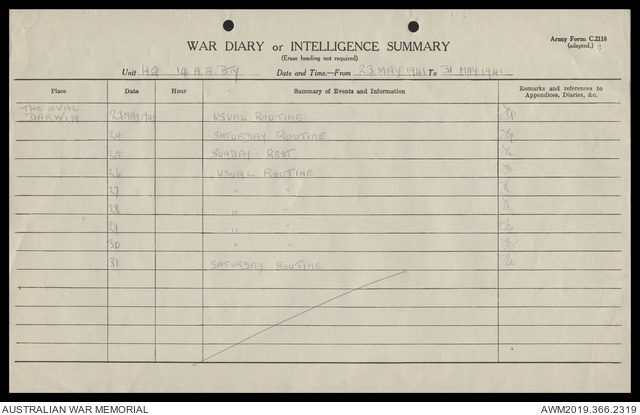 Army Form C.2118
(adapted.)
WAR DIARY or INTELLIGENCE SUMMARY
(Erase heading not required)
Unit HQ 14 A.A. BTY. Date and Time.—From 23 MAY 1941 To 31 MAY 1941
Place Date Hour Summary of Events and Information Remarks and references to Appendices, Diaries, &c.
THE OVAL
DARWIN 23 MAY 1941 USUAL ROUTINE.
24 SATURDAY ROUTINE
25 SUNDAY - REST
26 USUAL ROUTINE
27 " "
28 " "
29 " "
30 " "
31 SATURDAY ROUTINE
AUSTRALIAN WAR MEMORIAL
AWM2019.366.2319